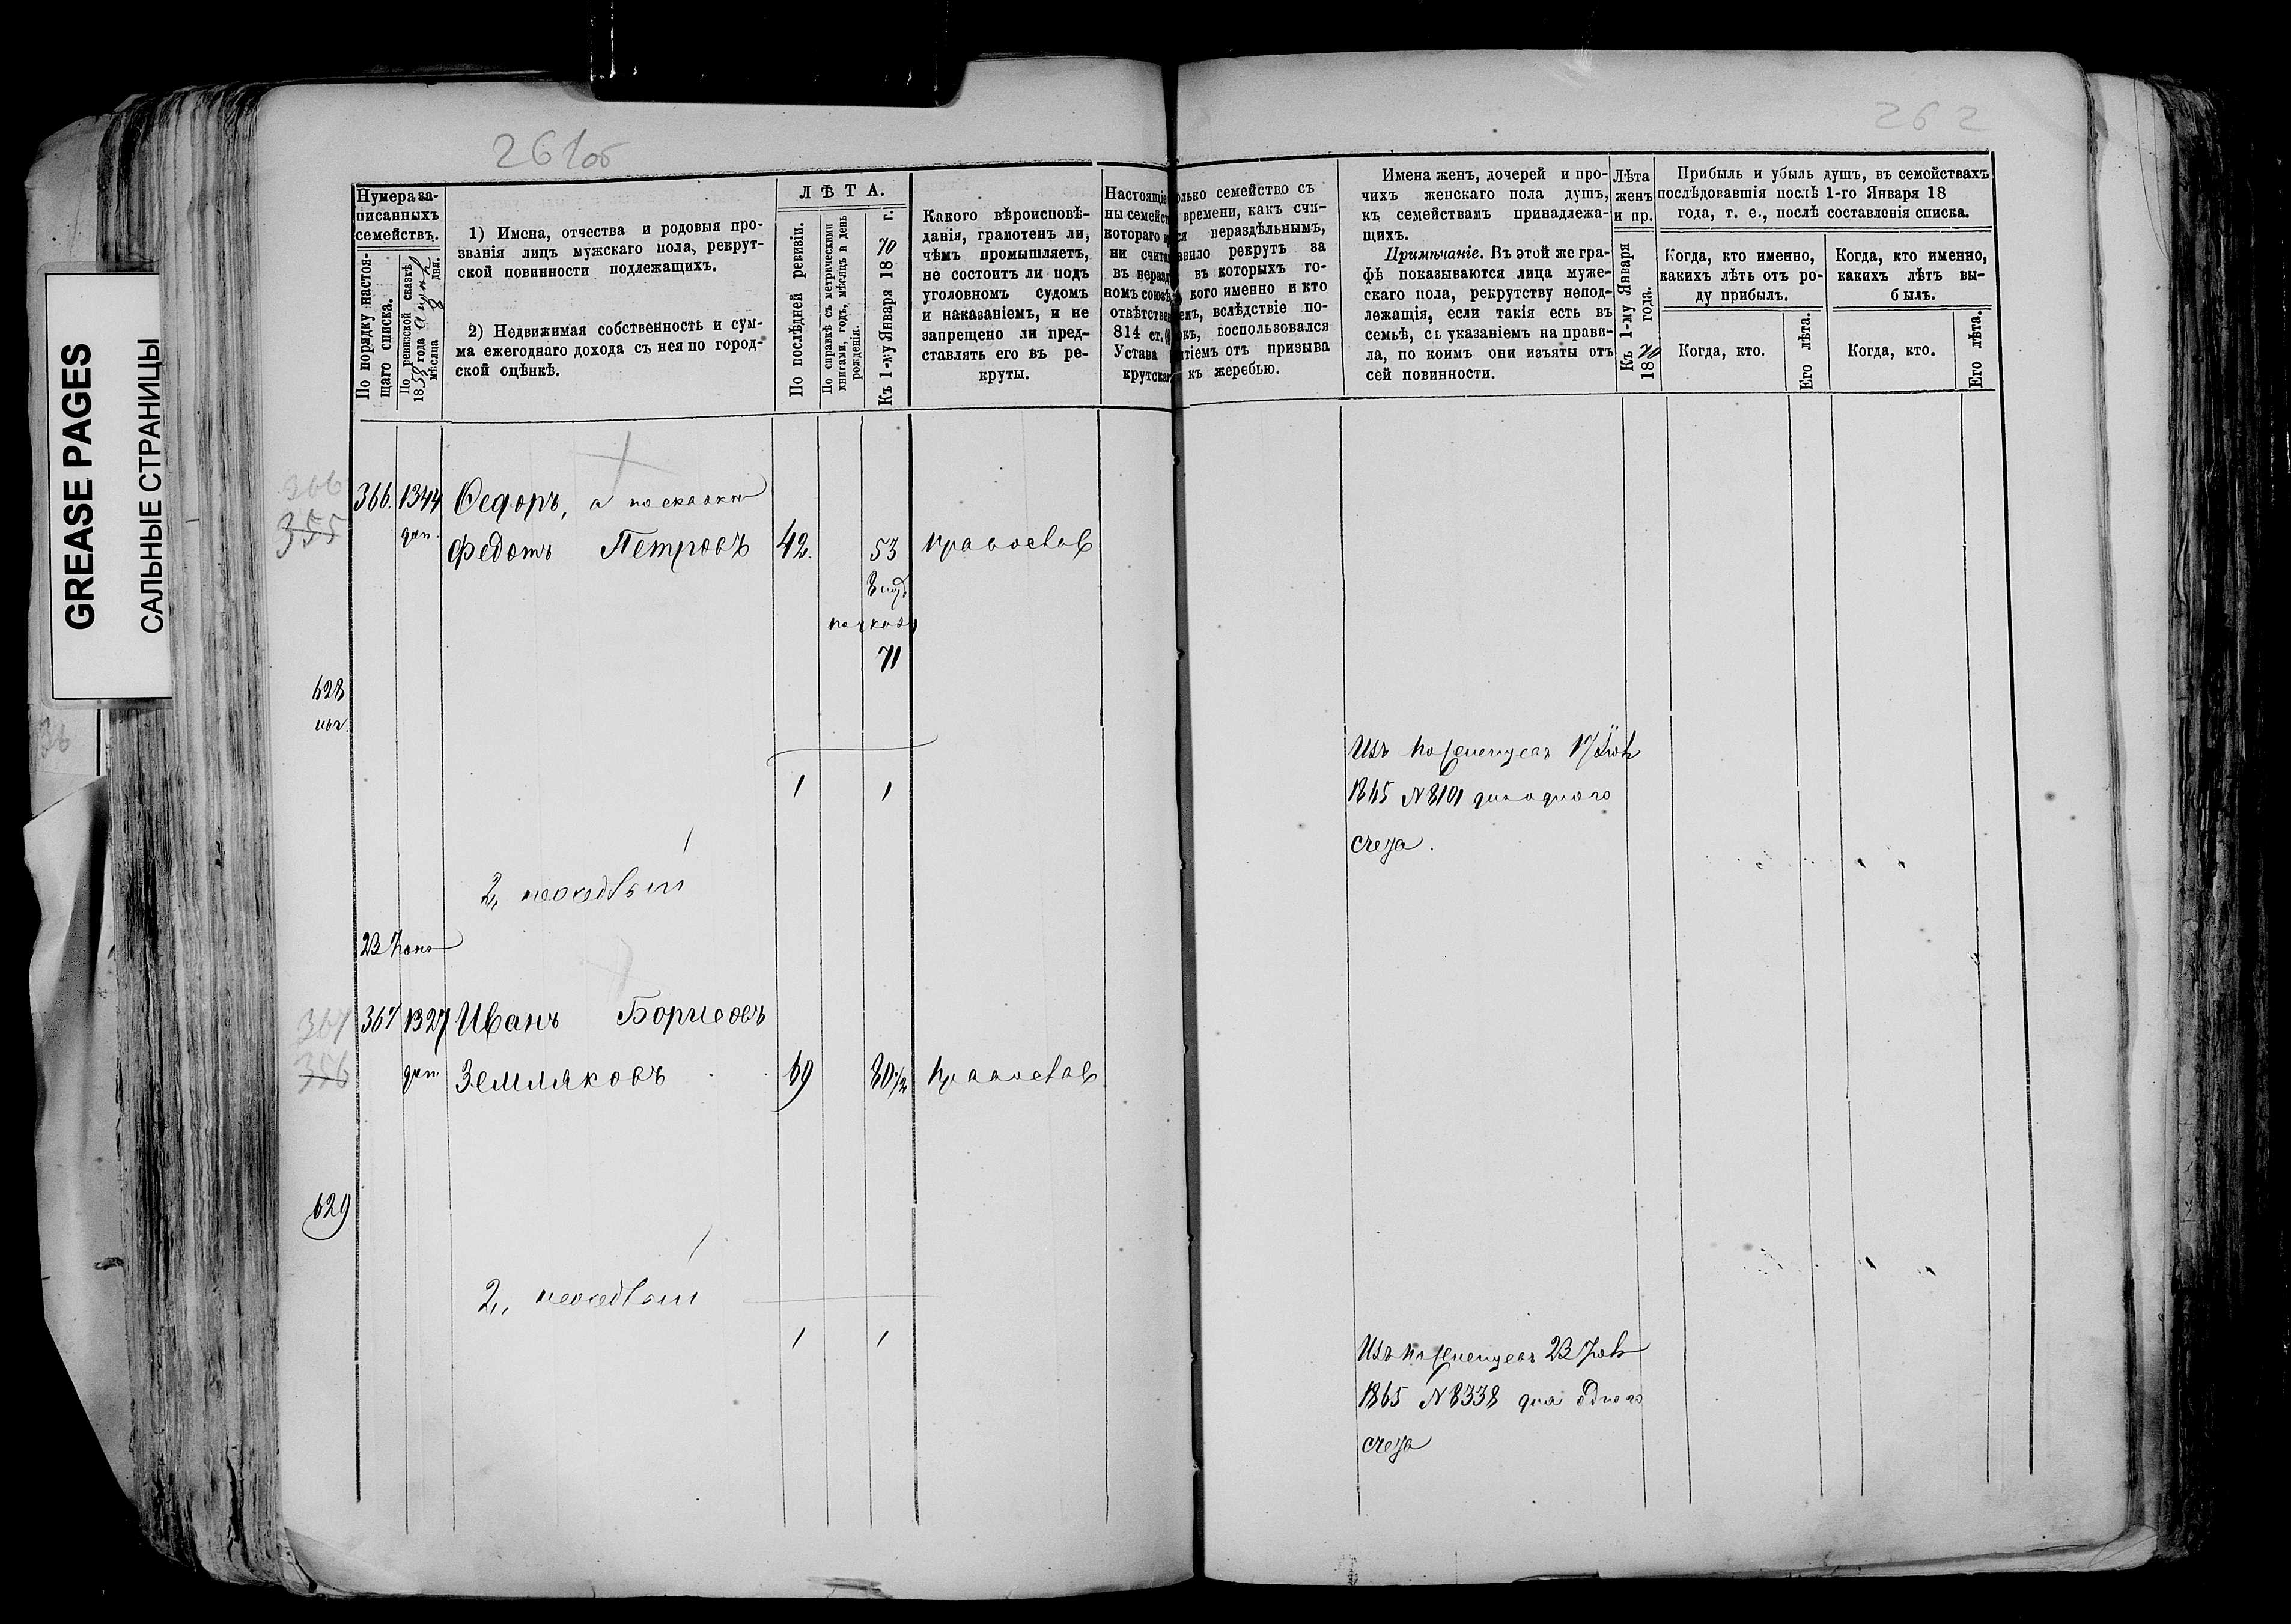 GREASE PAGES
САЛЬНЫЕ СТРАНИЦЫ
261об
262
Нумера за-
писанныхъ
семействъ.
По порядку настоя-
щаго списка.
По ревизской сказкѣ
1858 года
мѣсяца 8 дня.
1) Имена, отчества и родовыя про-
званія лицъ мужскаго пола, рекрут-
ской повинности подлежащихъ.
2) Недвижимая собственность и сум-
ма ежегоднаго дохода съ нея по город-
ской оцѣнкѣ.
ЛѢТА.
По послѣдней ревизіи.
По справкѣ съ метрическими
книгами, годъ, мѣсяцъ и день
рожденія.
Къ 1-му Января 1870 г.
Какого вѣроисповѣ-
данія, грамотенъ ли,
чѣмъ промышляетъ,
не состоитъ ли подъ
уголовномъ судомъ
и наказаніемъ, и не
запрещено ли пред-
ставлять его въ ре-
круты.
Настоящіе
ны семейст
котораго в
ни счита
въ нерозд
номъ союзѣ
отвѣтствен
814 ст.
Устава
крутска
олько семейство съ
времени, какъ счи-
ся нераздѣльнымъ,
авило рекрутъ за
въ которыхъ го-
кого именно и кто
емъ, вслѣдствіе по-
окъ, воспользовался
тіемъ отъ призыва
къ жеребью.
Имена женъ, дочерей и про-
чихъ женскаго пола душъ,
къ семействамъ принадлежа-
щихъ.
Примѣчаніе. Въ этой же гра-
фѣ показываются лица муже-
скаго пола, рекрутству непод-
лежащія, если такія есть въ
семьѣ, съ указаніемъ на прави-
ла, по коимъ они изъяты отъ
сей повинности.
Лѣта
женъ
и пр.
Къ 1-му Января
1870 года.
Прибыль и убыль душъ, въ семействахъ
послѣдовавшія послѣ 1-го Января 18
года, т. е., послѣ составленія списка.
Когда, кто именно,
какихъ лѣтъ отъ ро-
ду прибылъ.
Когда, кто именно,
какихъ лѣтъ вы-
былъ.
Когда, кто.
Его лѣта.
Когда, кто.
Его лѣта.
366
355
366. 1344 Ѳедоръ, а по сказки
доп. Федотъ Петровъ 42. 53 православ
71
628
1 1
Изъ 17
1865 N 8101 для одного
счета.
2, неосѣдлый
23
367
356
367 1327 Иванъ Борисовъ
доп. Земляковъ 69 80 1/2 православ
629
2,, неосѣдлый
1 1
Изъ 23
1865 N 8338 для одного
счета